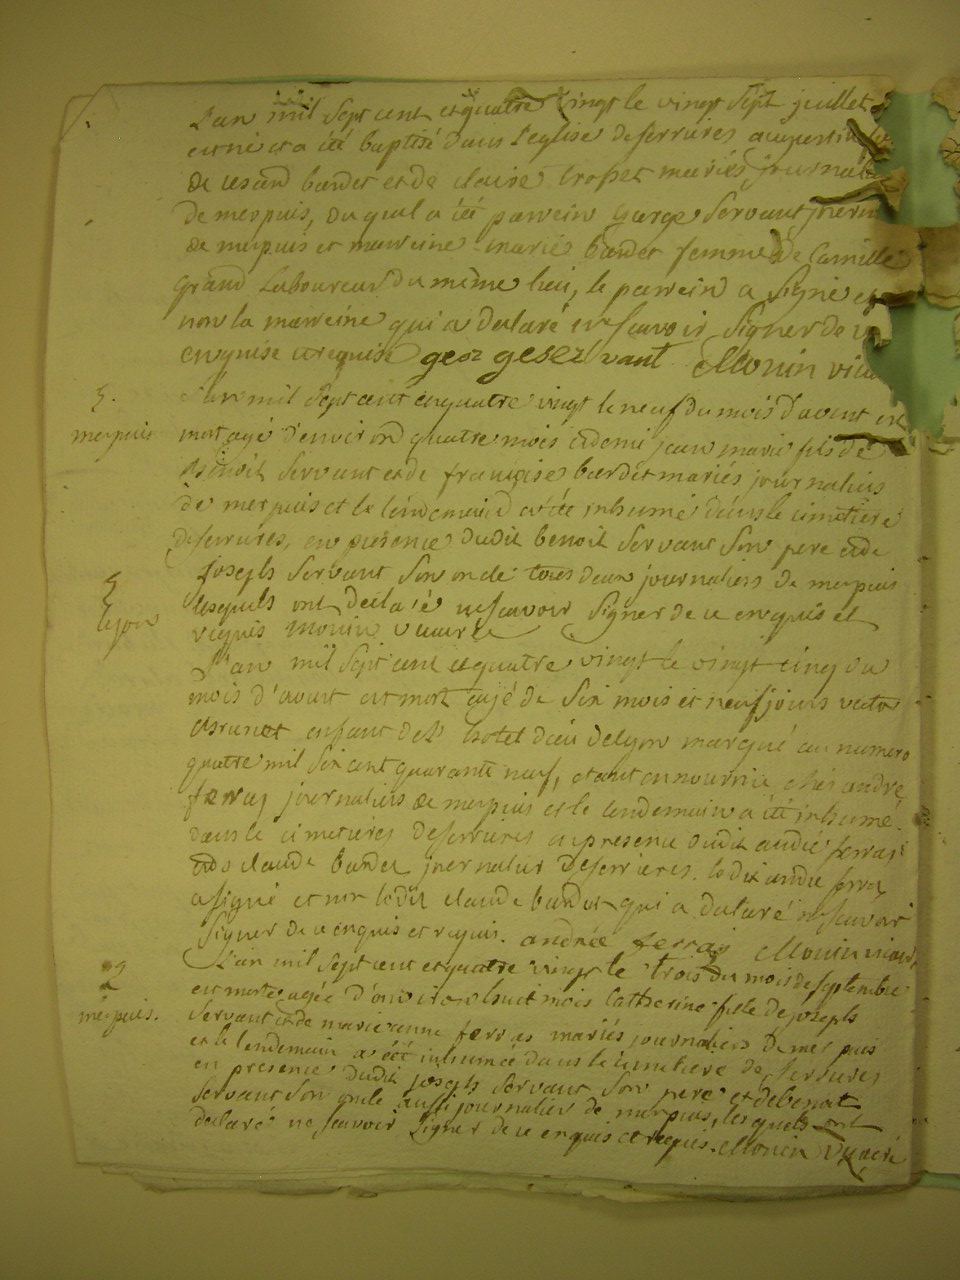 L'an mil Sept cent et quatre vingt le vingt Sept juillet
est né et a été baptisé dans l'eglise de serrieres
de cesard bardet et de claire tropet mariés journal
de merpuis, du qual a été parrein george Servant jnern
de merpuis et marreine marie bardet femme de Camille
grand Laboureur du même lieu, le parrein a Signé et
non la marreine qui a declaré ne scavoir signer de ce
enquise et requise geor geser vant Monin vicai
L'an mil Sept cent et quatre vingt le neuf du mois d'aout est
merpuis mort agé d'environ quatre mois et demi jean marie fils de
Benoit Servant et de françoise bardet mariés journaliers
de merpuis et le lendemain a été inhumé dans le cimetiere
de serrieres, en presence dudit benoit Servant Son pere et de
joseph Servant Son oncle tous deux journaliers de merpuis
lesquels ont declaré ne scavoir Signer de ce enquis et
lyon requis monin vicaire
L'an mil Sept cent et quatre vingt le vingt cinq du
mois d'aout est mort agé de Six mois et neuf jours
brunet enfant de l'hotel dieu de lyon marqué au numero
quatre mil Six cent quarante neuf, etant en nourrice chés andré
ferras journaliers de merpuis et le lendemain a été inhumé
dans le cimetieres de serrieres en presence dudit andré ferras
et de claude bardet jnernalier de serrieres. ledit andré ferra
a signé et non ledit claude bardet qui a declaré ne scavoir
Signer de ce enquis et requis. andrée ferras Monin vicaire
L'an mil Sept cent et quatre vingt le trois du mois de septembre
est morte agée d'environ huit mois Catherine fille de joseph
merpuis. Servant et de marie anne ferras mariés journaliers de merpuis
et le lendemain a été inhumée dans le cimetiere de serrieres
en presence dudit joseph Servant Son pere et de benoit
Servant Son oncle aussi journalier de merpuis, lesquels ont
declaré ne scavoir Signer de ce enquis et requis. Monin vicaire